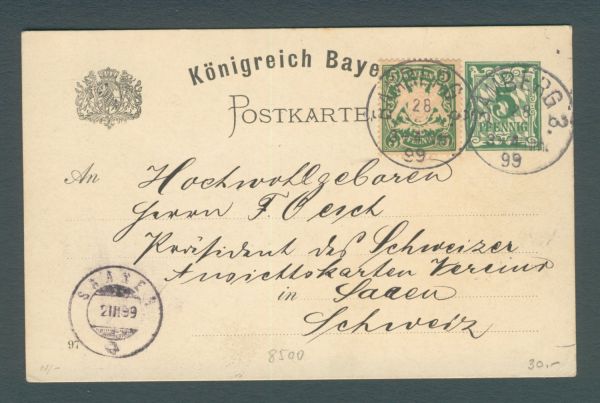 Königreich Baye
POSTKARTE
5 5
PFENNIG
28
99
BAMBERG 3.
5
PFENNIG
99
An Hochwohlgeboren
Herrn F. Oesch
Präsident des Schweizer
Ansichtskarten Vereins
in Saaen
Schweiz
SAANEN
21 II 99
97
8500
30.-